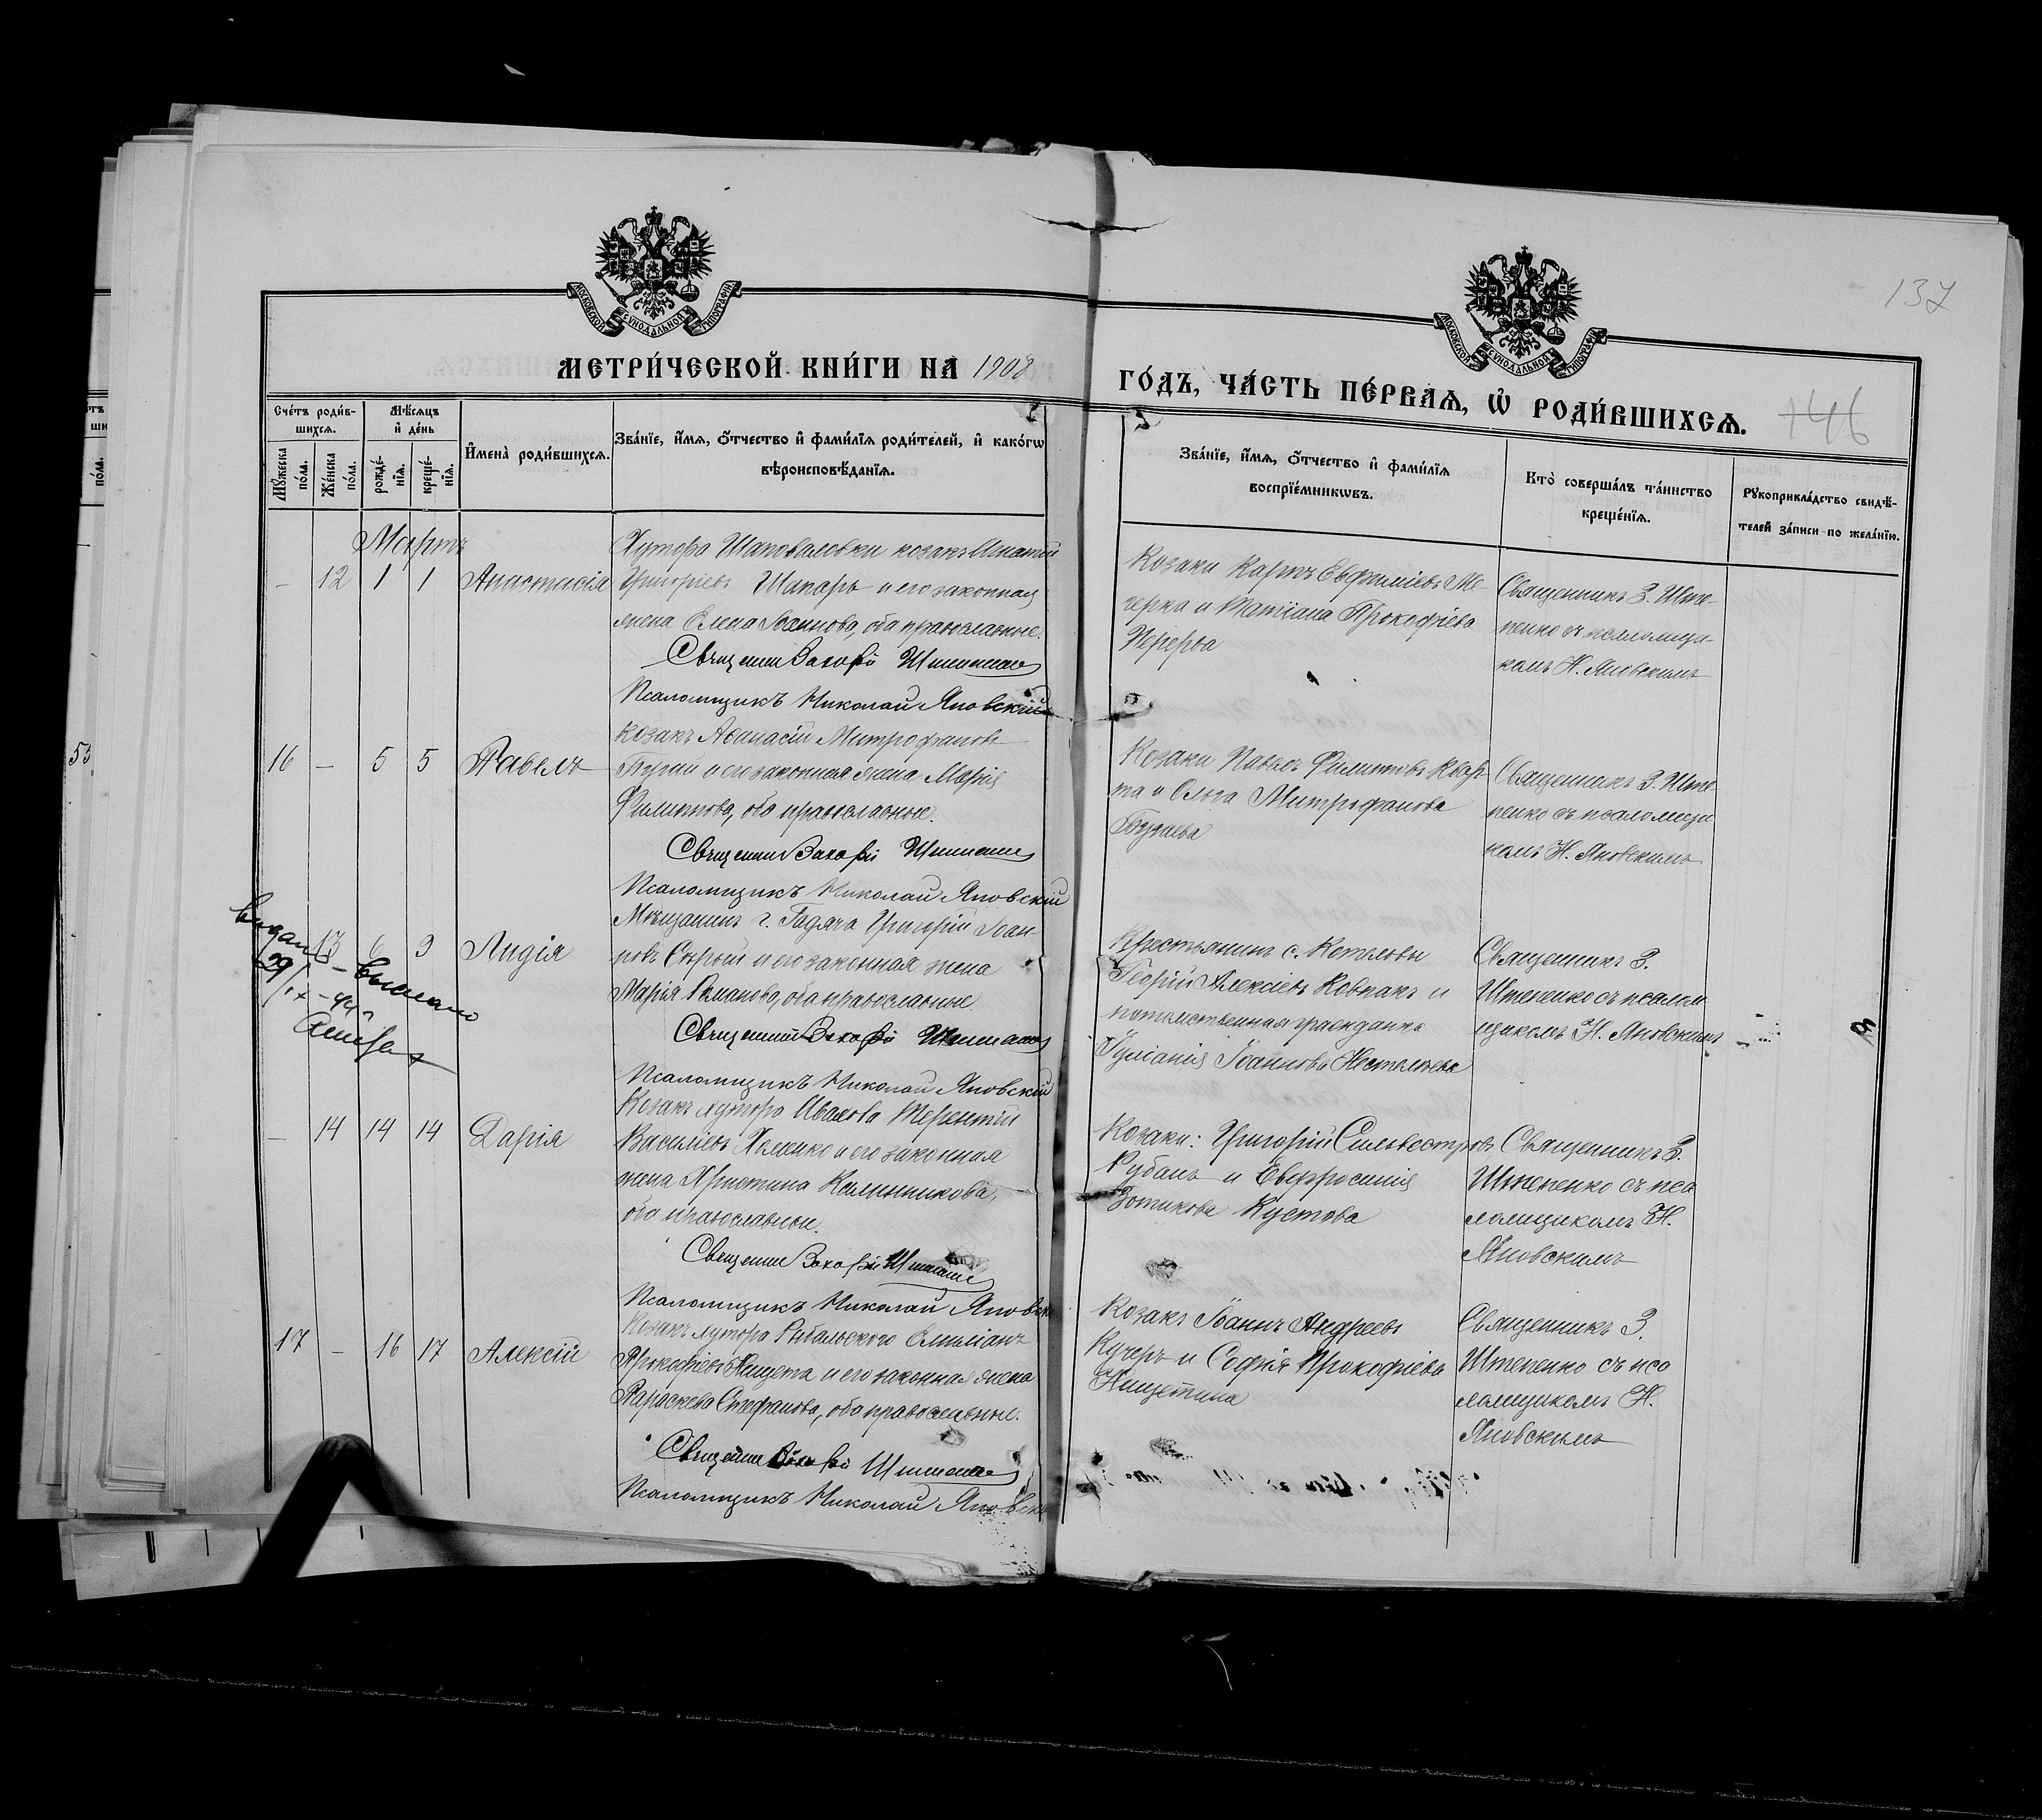 137
МОСКОВСКОЙ СУНОДАЛЬНОЙ ТИПОГРАФІИ
МОСКОВСКОЙ СУНОДАЛЬНОЙ ТИПОГРАФІИ
МЕТРИ́ЧЕСКОЙ КНИ́ГИ НА 1908
ГО́ДЪ, ЧА́СТЬ ПЕ́РВАѦ, Ѽ РОДИ́ВШИХСѦ.
146
Сче́тъ роди́в-
шихсѧ.
Мѣ́сѧцъ
и҆ де́нь
Мꙋ́жеска
по́ла.
Же́нска
по́ла.
рожде́-
нїѧ.
креще́-
нїѧ.
И҆мена̀ роди́вшихсѧ.
Зва́нїе, и҆́мѧ, ѻ҆́тчество и҆ фами́лїѧ роди́телей, и҆ како́гѡ
вѣроисповѣ́данїѧ.
Зва́нїе, и҆́мѧ, ѻ҆́тчество и҆ фами́лїѧ
воспрїе́мникѡвъ.
Кто̀ соверша́лъ та́инство
креще́нїѧ.
Рꙋкоприкла́дство свидѣ́-
телей за́писи по жела́нїю.
Мартъ
- 12 1 1 Анастасія
Хутора Шаповаловки козакъ Игнатій
Григоріевъ Шапаръ и его законная
жена Елена Іоаннова, оба православные.
Священник Захарій Штепенко
Псаломщикъ Николай Яновскій
Козаки Карпъ Евфиміевъ Ме-
черка и Татіана Прокофіева
Перерва
Священникъ З.Ште-
пенко съ псаломщи-
комъ Н. Яновскимъ
16 - 5 5 Павелъ
Козакъ Аѳанасій Митрофановъ
и его законная жена Марія
Филиппова, оба православные.
Священник Захарій Штепенко
Псаломщикъ Николай Яновскій
Козаки Павелъ Филиповъ Квар-
та и Ольга Митрофанова
Священникъ З. Ште-
пенко съ псаломщи
комъ Н. Яновскимъ
13 6 9 Лидія
29/IX-44
Мѣщанинъ г. Гадяча Григорій Іоан-
новъ Сѣрый и его законная жена
Марія Романова, оба православные.
Священник Захарій Штепенко
Псаломщикъ Николай Яновскій
Крестьянинъ с. Котельвы
Георгій Алексіевъ Ковпакъ и
потомственная гражданка
Іуліанія Іоаннова
Священникъ З.
Штепенко съ псалом
щикомъ Н. Яновскимъ
- 14 14 14 Дарія
Козакъ хутора Терентій
Василіевъ и его законная
жена Христина Калинникова,
оба православные.
Священник Захарій Штепенко
Псаломщикъ Николай Яновск
Козаки: Григорій Сильвестровъ
Рубанъ и Евфросинія
Зотикова Кустова
Священникъ З.
Штепенко съ пса
ломщикомъ Н.
Яновскимъ
17 - 16 17 Алексій
Козакъ хутора Рыбальского Емиліанъ
Прокофіевъ Нищета и его законная жена
Параскева Стефанова, оба православные.
Священник Захарій Штепенко
Псаломщикъ Николай Яновск
Козакъ Іоаннъ Андреевъ
Кучеръ и Софія Прокофіева
Нищетина
Священникъ З.
Штепенко съ пса
ломщикомъ Н.
Яновскимъ